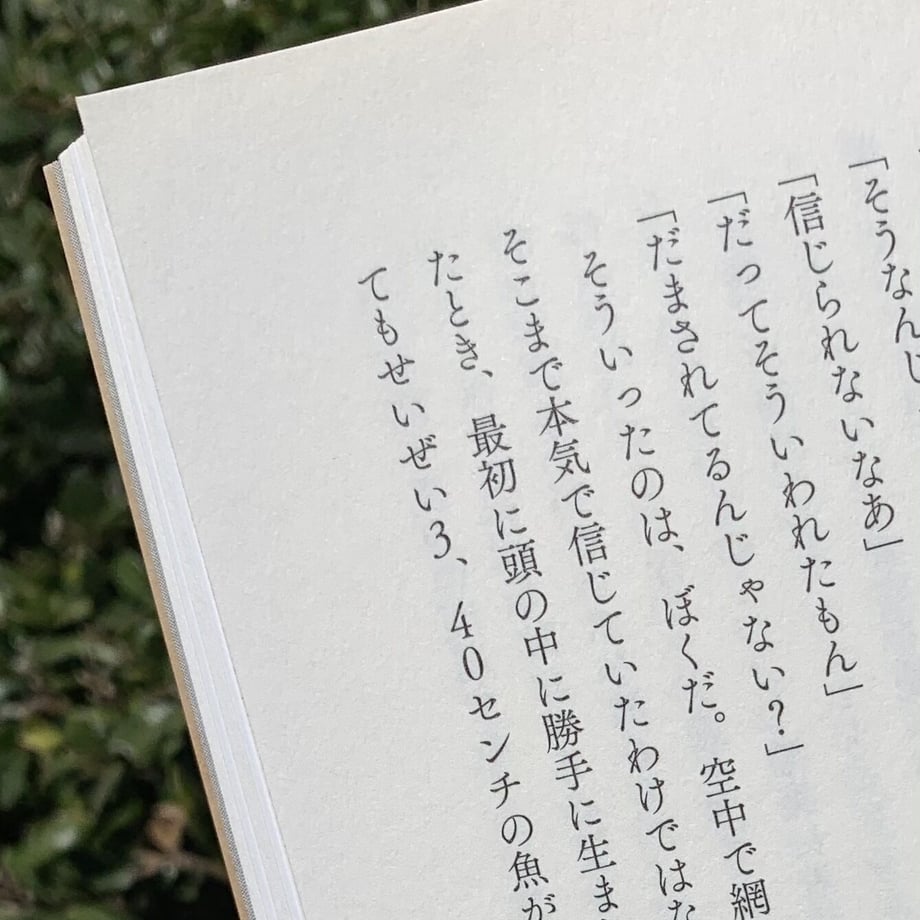 「そうなんじ
「信じられないなあ」
「だってそういわれたもん」
「だまされてるんじゃない？」
そういったのは、ぼくだ。空中で網
そこまで本気で信じていたわけではな
たとき、最初に頭の中に勝手に生ま
てもせいぜい3、40センチの魚が